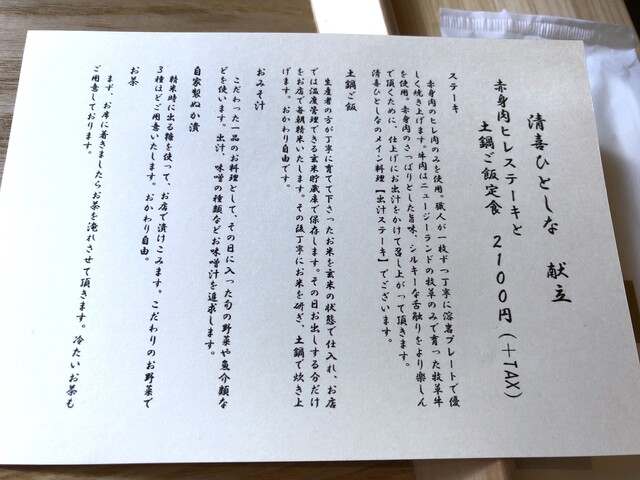 清喜ひとしな　献立
赤身肉ヒレステーキと
土鍋ご飯定食　2100円（＋TAX）
ステーキ
赤身肉のヒレ肉のみを使用。職人が一枚ずつ丁寧に溶岩プレートで優
しく焼き上げます。牛肉はニュージーランドの牧草のみで育った牧草牛
を使用。赤身肉のさっぱりとした旨味、シルキーな舌触りをより楽しん
で頂くために、仕上げにお出汁をかけて召し上がって頂きます。
清喜ひとしなのメイン料理【出汁ステーキ】でございます。
土鍋ご飯
生産者の方が丁寧に育てて下さったお米を玄米の状態で仕入れ、お店
では温度管理できる玄米貯蔵庫で保存します。その日お出しする分だけ
をお店で毎朝精米いたします。その後丁寧にお米を研ぎ、土鍋で炊き上
げます。おかわり自由です。
おみそ汁
こだわった一品のお料理として、その日に入った旬の野菜や魚介類な
どを使います。出汁、味噌の種類などお味噌汁を追求します。
自家製ぬか漬
精米時に出る糠を使って、お店で漬けこみます。こだわりのお野菜で
3種ほどご用意いたします。おかわり自由。
お茶
まず、お席に着きましたらお茶を淹れさせて頂きます。冷たいお茶も
ご用意しております。